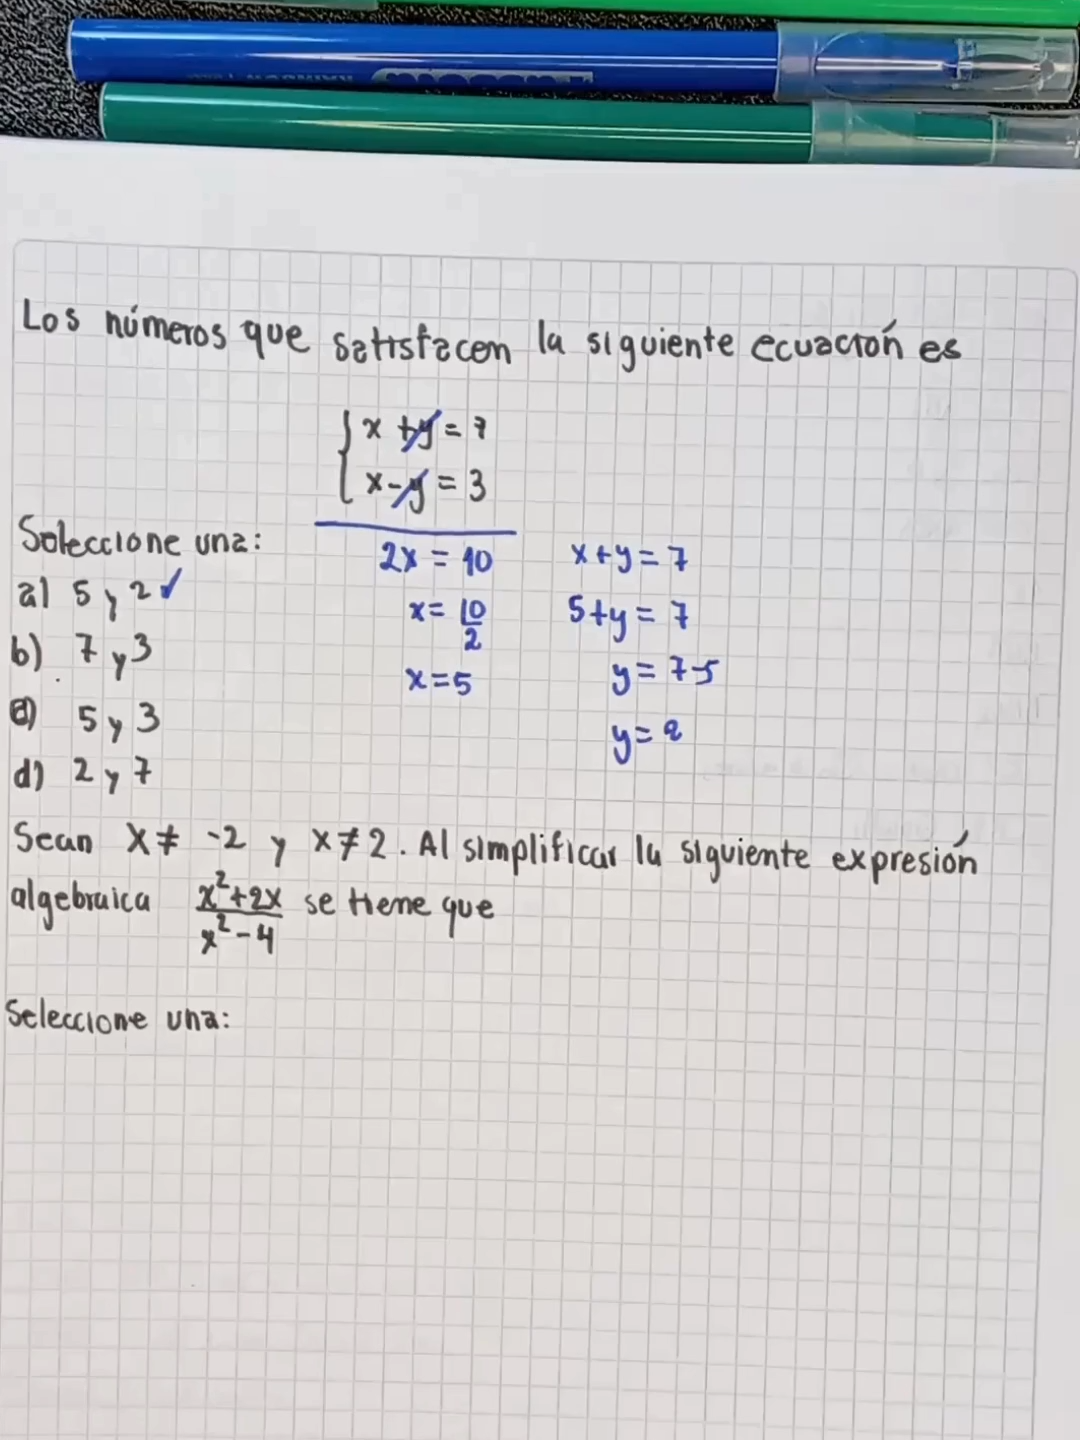 Los números que satisfacen la siguiente ecuación es
x + y = 7
x - y = 3
2x = 10
x + y = 7
Seleccione una:
a) 5 y 2 ✓
x = 10/2
5 + y = 7
b) 7 y 3
x = 5
y = 7-5
c) 5 y 3
y = 2
d) 2 y 7
Sean x ≠ -2 y x ≠ 2. Al simplificar la siguiente expresión
algebraica x²+2x / x²-4 se tiene que
Seleccione una: